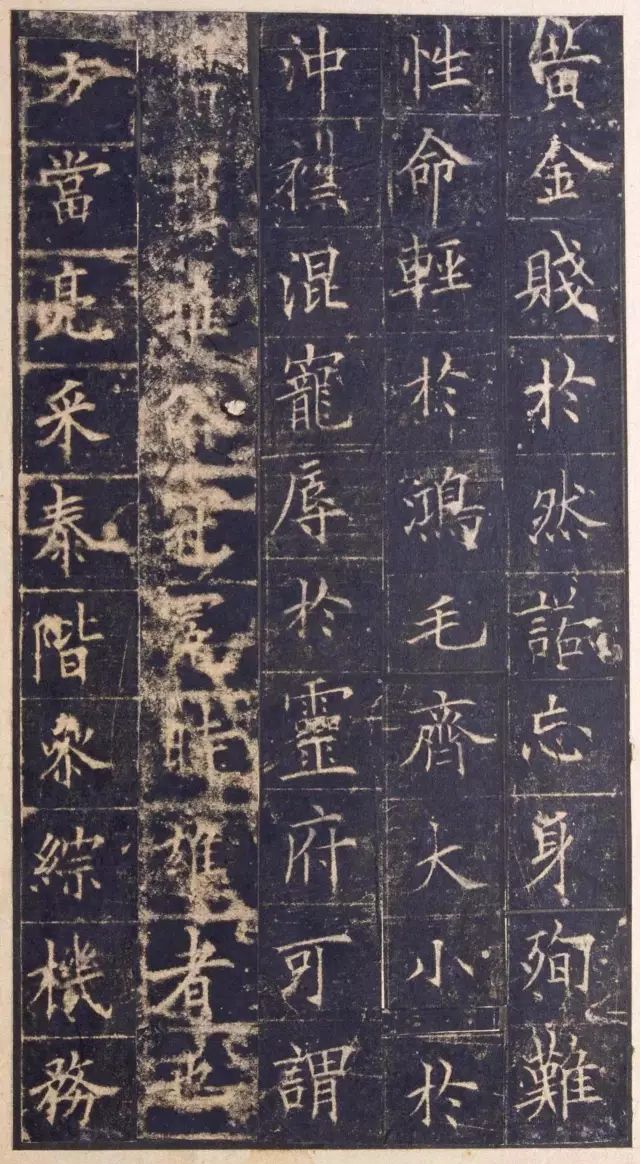 黃金賤於然諾忘身殉難
性命輕於鴻毛齊大小於
沖襟混寵辱於靈府可謂
冠時雄者也
方當亮采泰階參綜機務